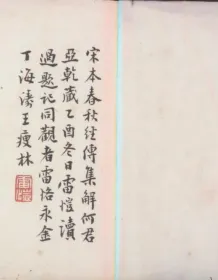 宋本春秋经傳集解何君
亞乾藏乙酉冬日雷愷讀
過題记同觀者雷恪永金
丁海濤王瘦林